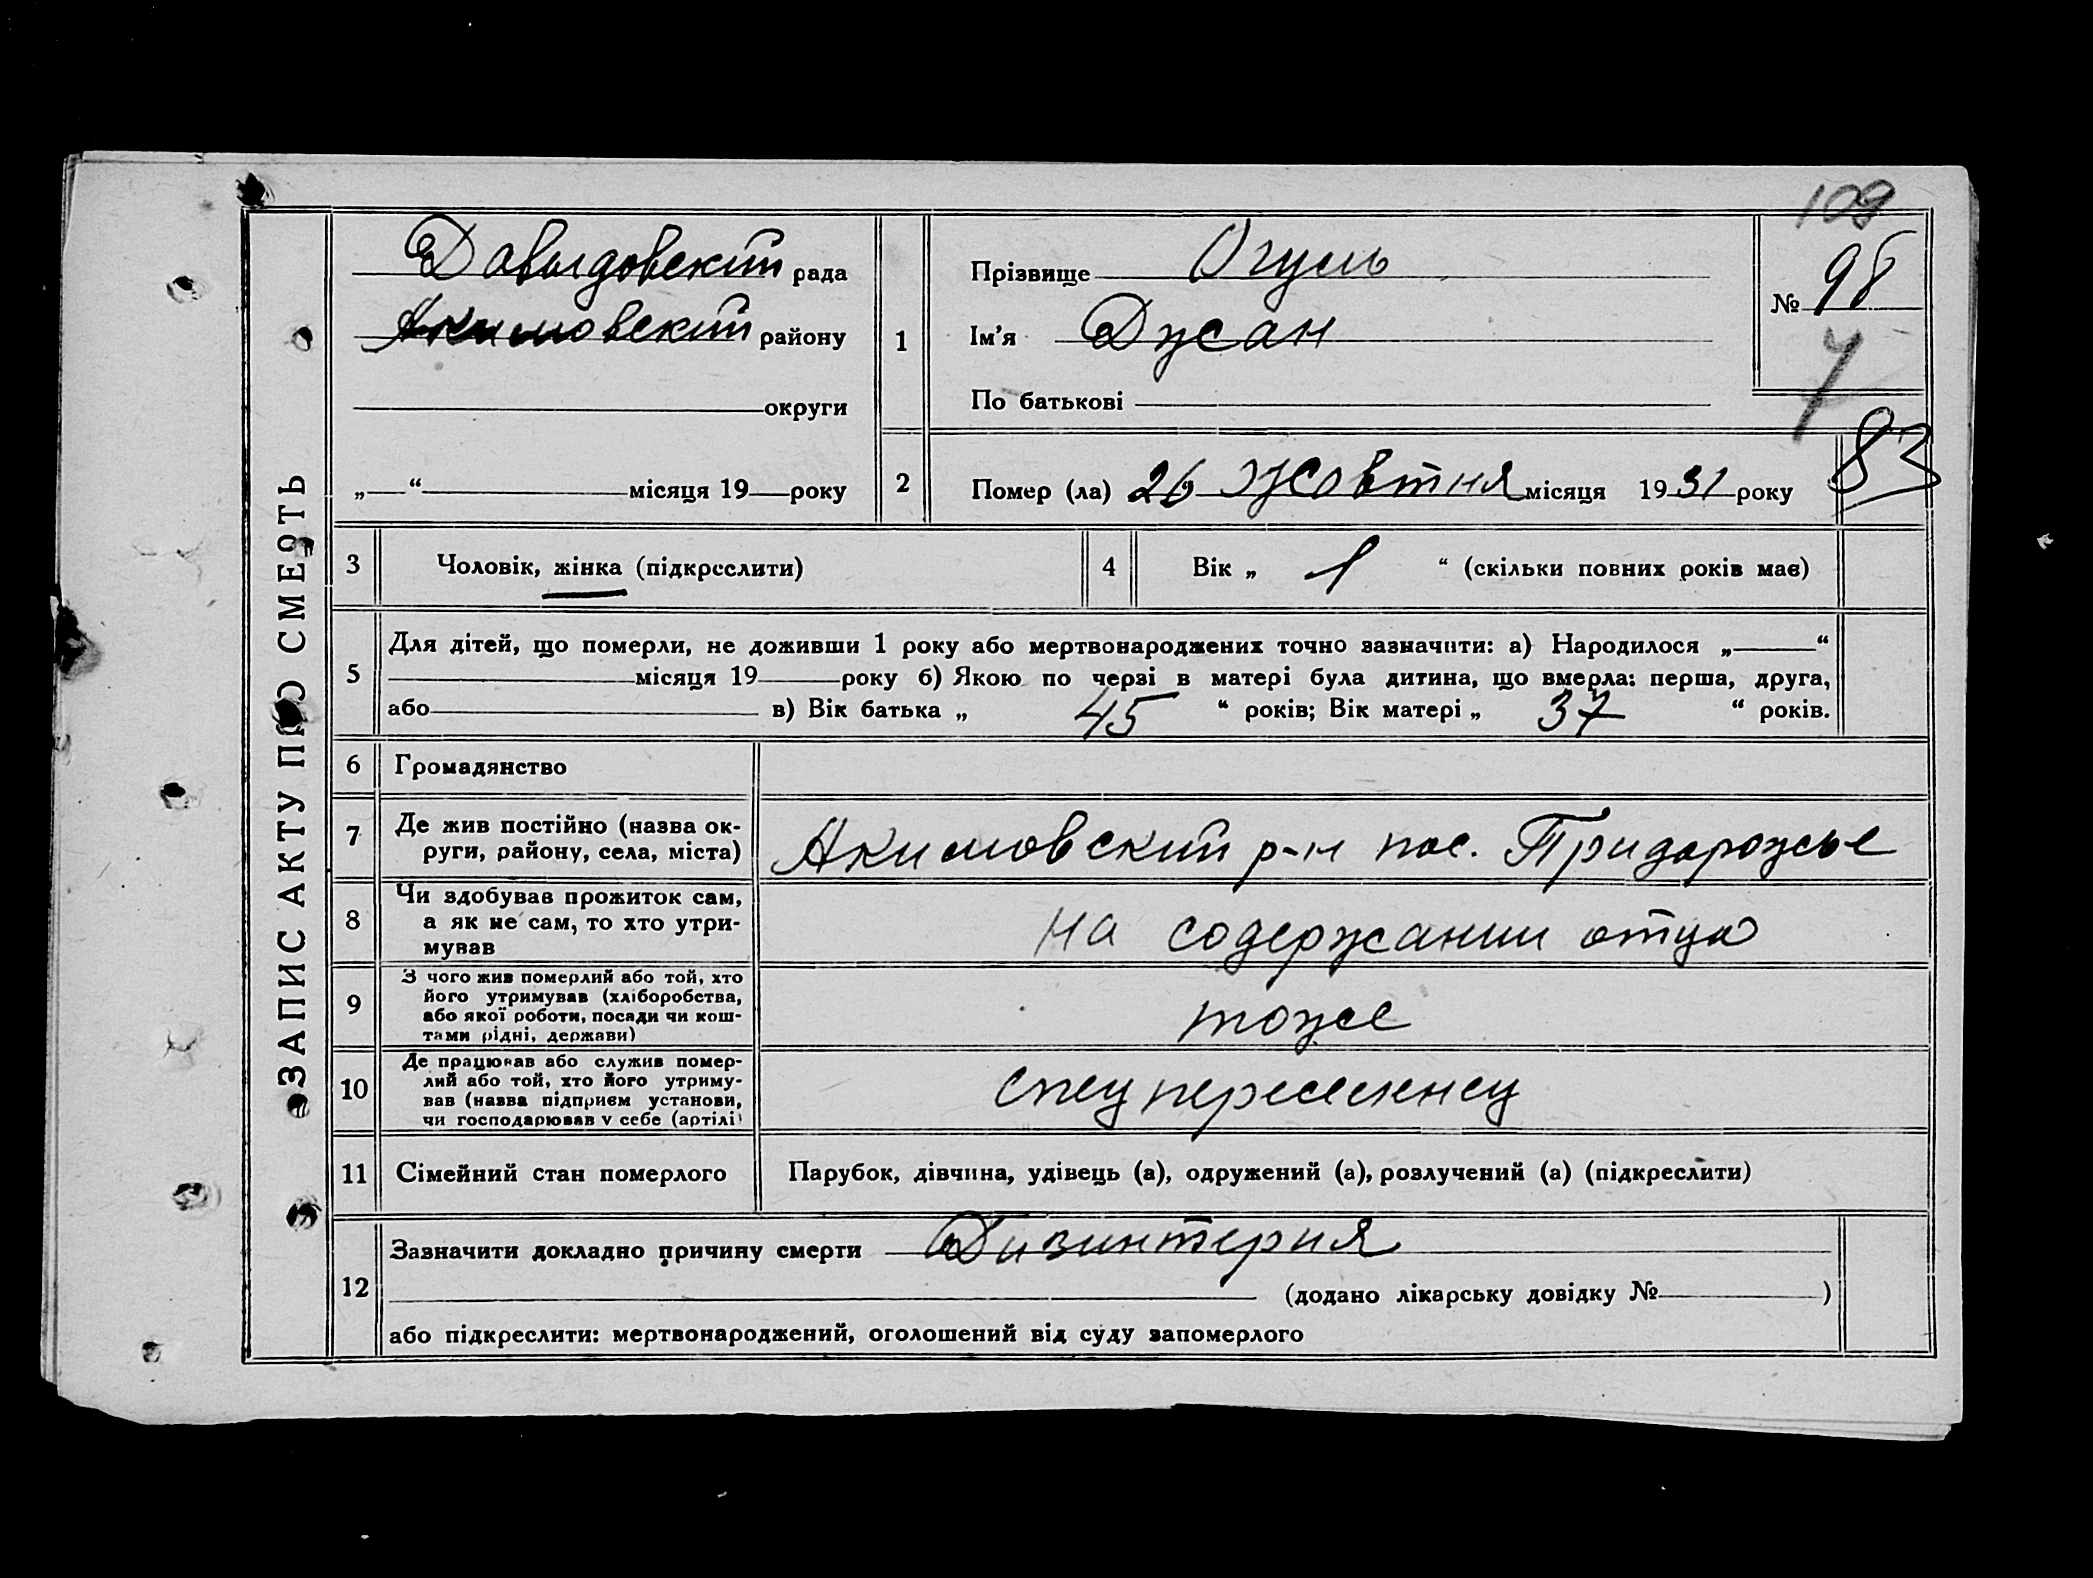 109
ЗАПИС АКТУ ПРО СМЕРТЬ
Давыдовский рада
Акимовский району
округи
„ “ місяця 19 року
1
Прізвище Огуль
Ім’я Дусан
По батькові
№ 98
83
2
Помер (ла) 26 жовтня місяця 1931 року
3 Чоловік, жінка (підкреслити)
4 Вік „ 1 “ (скільки повних років має)
5
Для дітей, що померли, не доживши 1 року або мертвонароджених точно зазначити: а) Народилося „ “
місяця 19 року б) Якою по черзі в матері була дитина, що вмерла: перша, друга,
або в) Вік батька „ 45 “ років; Вік матері „ 37 “ років.
6 Громадянство
7 Де жив постійно (назва ок-
руги, району, села, міста)
Акимовский р-н пос. Придорожье
8 Чи здобував прожиток сам,
а як не сам, то хто утри-
мував
на содержании отца
9 З чого жив померлий або той, хто
його утримував (хліборобства,
або якої роботи, посади чи кош-
тами рідні, держави)
тоже
10 Де працював або служив помер-
лий або той, хто його утриму-
вав (назва підприєм установи,
чи господарював у себе (артілі)
спецпереселенец
11 Сімейний стан померлого
Парубок, дівчина, удівець (а), одружений (а), розлучений (а) (підкреслити)
12
Зазначити докладно причину смерти Дизинтерия
(додано лікарську довідку № )
або підкреслити: мертвонароджений, оголошений від суду запомерлого